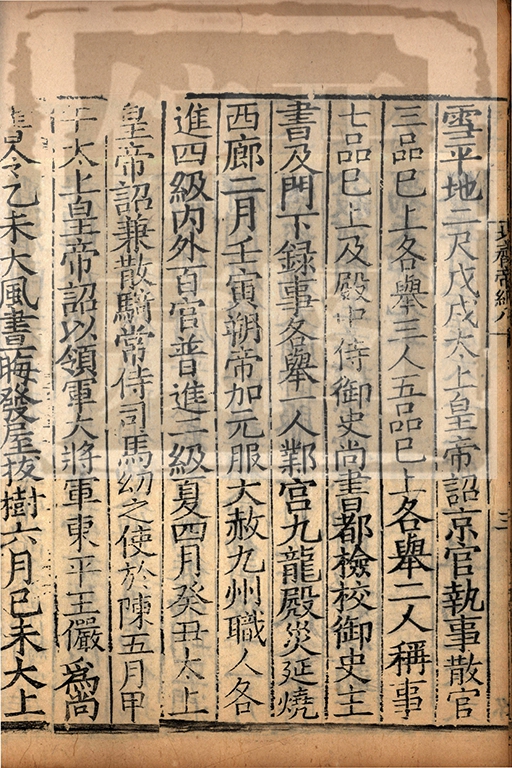 雪平地二尺戊戌太上皇帝詔京官執事散官
三品已上各舉三人五品已上各舉二人稱事
七品已上及殿中侍御史尚書都檢校御史主
書及門下録事各舉一人鄴宫九龍殿災延燒
西廊二月壬寅朔帝加元服大赦九州職人各
進四級内外百官普進二級夏四月癸丑太上
皇帝詔兼散騎常侍司馬幼之使於陳五月甲
午太上皇帝詔以領軍大將軍東平王儼爲尚
書令乙未大風晝晦發屋拔樹六月己未太上